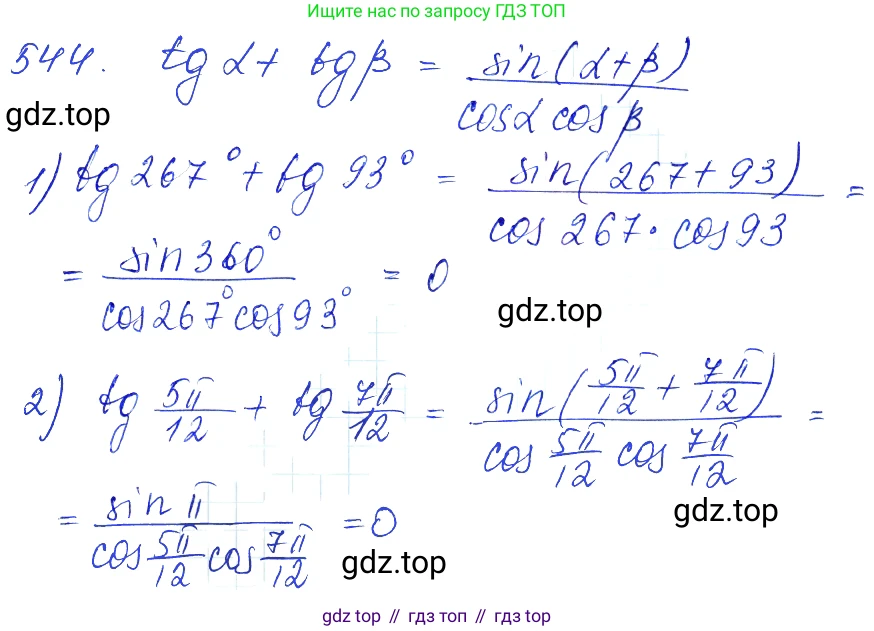 Ищите нас по запросу ГДЗ ТОП
544. tg α + tg β = sin(α+β) / cosα cosβ
gdz.top
1) tg 267° + tg 93° = sin(267+93) / cos 267 · cos 93 =
= sin 360° / cos 267° cos 93° = 0
gdz.top
2) tg 5π/12 + tg 7π/12 = sin(5π/12 + 7π/12) / cos 5π/12 cos 7π/12 =
= sin π / cos 5π/12 cos 7π/12 = 0
gdz.top
gdz.top
gdz top // гдз топ // gdz top